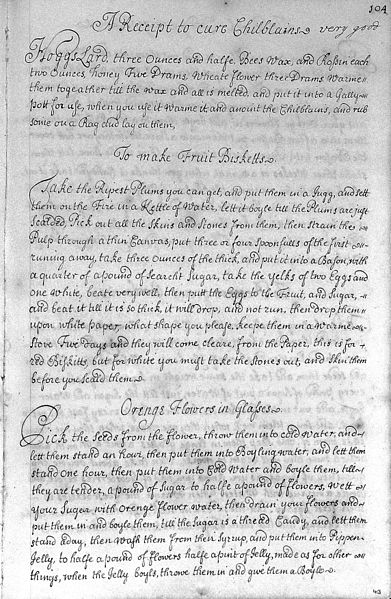 104
A Receipt to cure Chilblains very good
Hoggs Lard, three Ounces and halfe, Bees Wax, and Rossin each
two Ounces, honey Five Drams, Wheate flower three Drams Warme
them togeather till the Wax and all is melted, and put it into a Gally
pott for use, when you use it Warme it and anoint the Chilblains, and rub
some on a Rag and lay on them,
To make Fruit Bisketts
Take the Ripest Plums you can get, and put them in a Jugg, and sett
them on the Fire in a Kettle of Water, lett it boyle till the Plums are just
scalded, Pick out all the Skins and Stones from them, then strain the
Pulp through a thin Canvas, put three or four spoonfulls of the first
runing away, take three Ounces of the thick, and put it into a Bason, with
a quarter of a pound of Searcht Sugar, take the yelks of two Eggs and
one White, beate very well, then putt the Eggs to the Fruit, and Sugar,
and beat it till it is so thick it will drop, and not run, then drop them
upon white paper, what shape you please, keepe them in a Warme
Stove Five days and they will come cleare, from the Paper, this is for
red Biskitts, but for white you must take the Stones out, and Skin them
before you scald them
Orenge Flowers in Glasses
Pick the seeds from the flower, throw them into cold Water, and
lett them stand an hour, then put them into Boyling water, and lett them
stand one hour, then put them into Cold Water and boyle them, till
they are tender, a pound of Sugar to halfe a pound of flowers, Wett
your Sugar with Orenge flower Water, then drain your flowers and
put them in and boyle them, till the Sugar is a thred Candy, and lett them
stand a day, then Wash them from their Syrup, and put them into Pippen
Jelly, to halfe a pound of flowers halfe a pint of Jelly, made as for other
things, when the Jelly boyls, throw them in and give them a Boyle